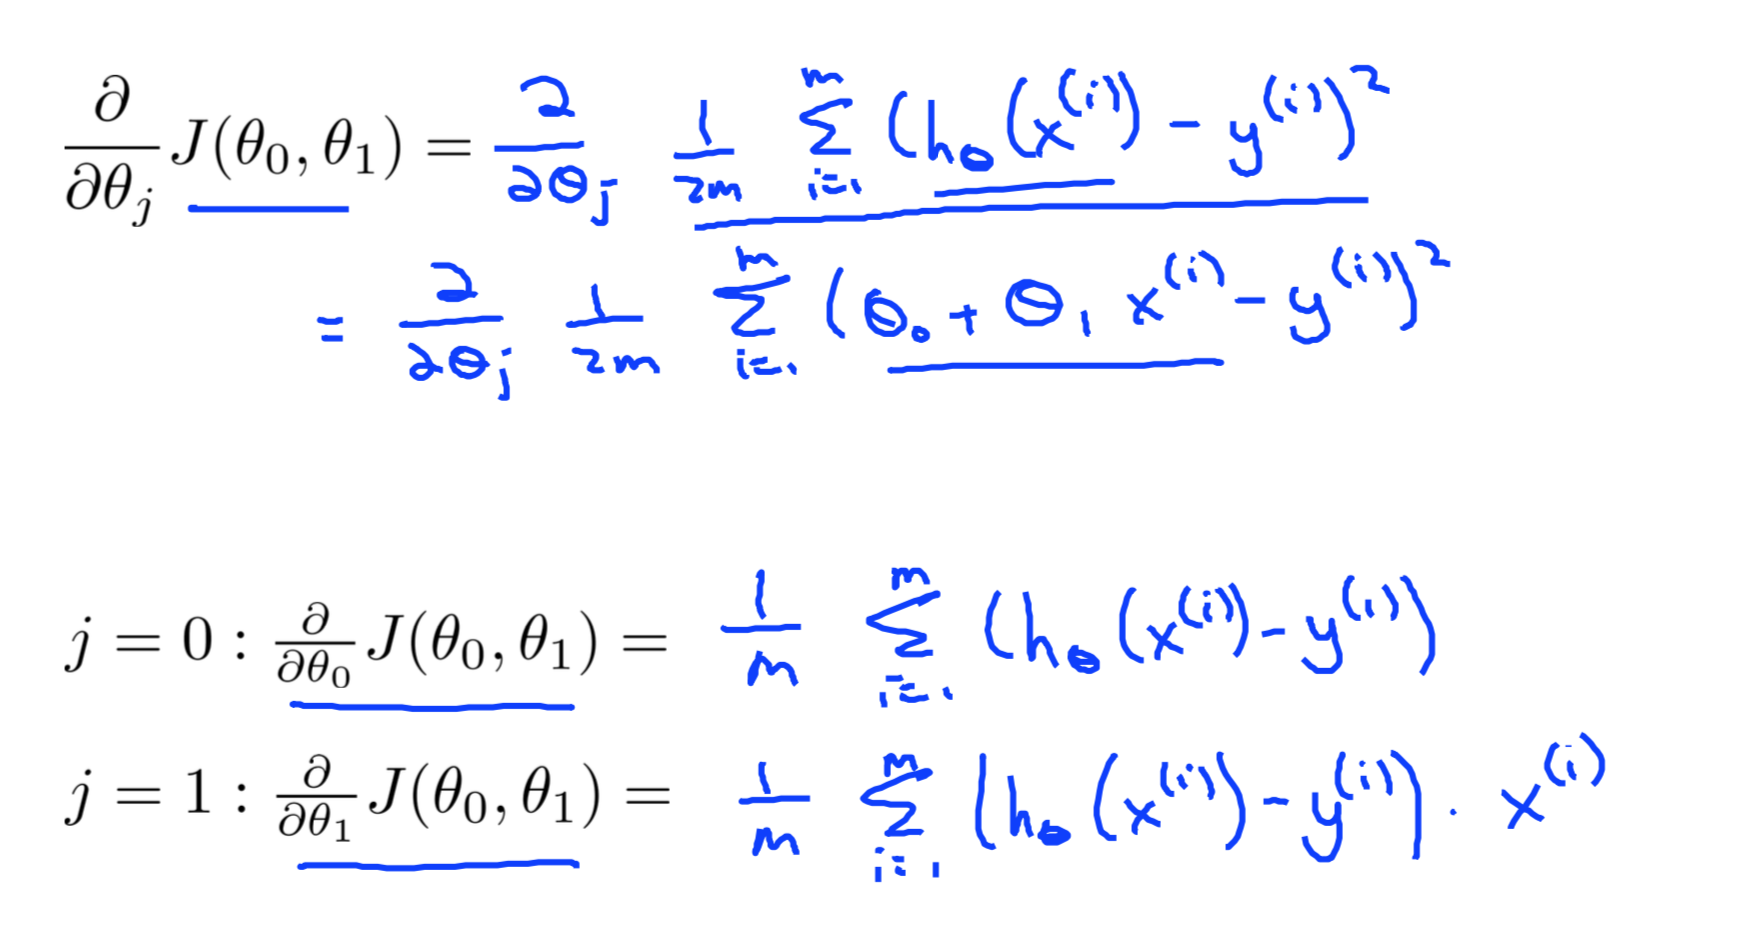 ∂/∂θ_j J(θ_0, θ_1) = ∂/∂θ_j 1/2m ∑_{i=1}^{m} (h_θ(x^{(i)}) - y^{(i)})^2
= ∂/∂θ_j 1/2m ∑_{i=1}^{m} (θ_0 + θ_1 x^{(i)} - y^{(i)})^2
j = 0 : ∂/∂θ_0 J(θ_0, θ_1) = 1/m ∑_{i=1}^{m} (h_θ(x^{(i)}) - y^{(i)})
j = 1 : ∂/∂θ_1 J(θ_0, θ_1) = 1/m ∑_{i=1}^{m} (h_θ(x^{(i)}) - y^{(i)}) · x^{(i)}